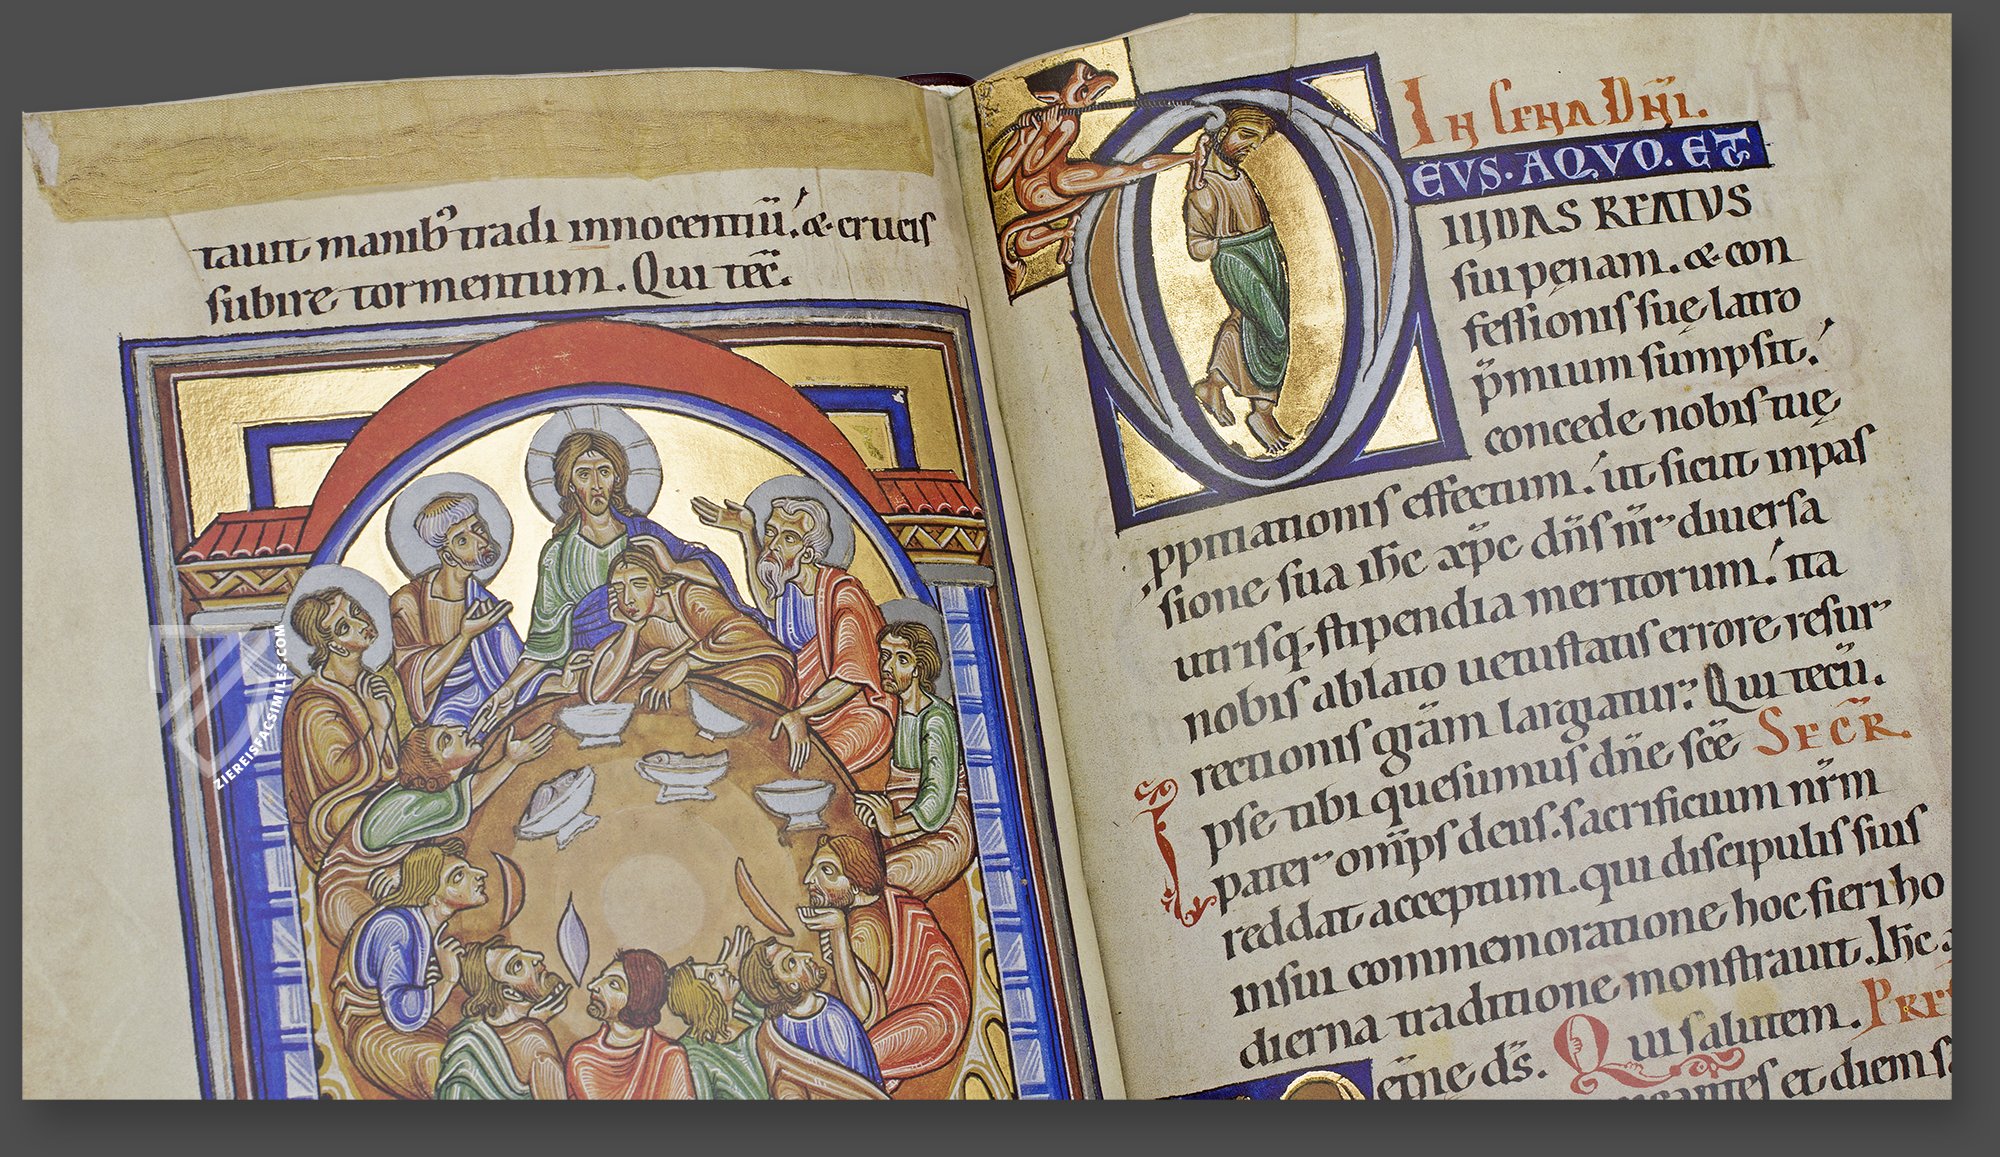 tauit manib᾽ tradi innocentiū. & crucis
subire tormentum. Qui tec̄.
ZIEREISFACSIMILES.COM
IN CENA DN̄I.
EVS. A QVO. ET
IUDAS REATUS
sui penam. & con
fessionis suę latro
p̄mium sumpsit.
concede nobis tuę
ppitiationis effectum. ut sicut in pas
sione sua ih̄c xp̄c dn̄s nr̄ diuersa
utrisq; stipendia meritorum. ita
nobis ablato uetustatis errore resur
rectionis grām largiatur. Qui tecū.
SECR̄.
Ipse tibi quesumus dn̄e sc̄e
pater om̄ps deus. sacrificium nr̄m
reddat acceptum. qui discipulis suis
in sui commemoratione hoc fieri ho
dierna traditione monstrauit. Ih̄c
Qui salutem. PREF
et̄ne ds̄.
et diem